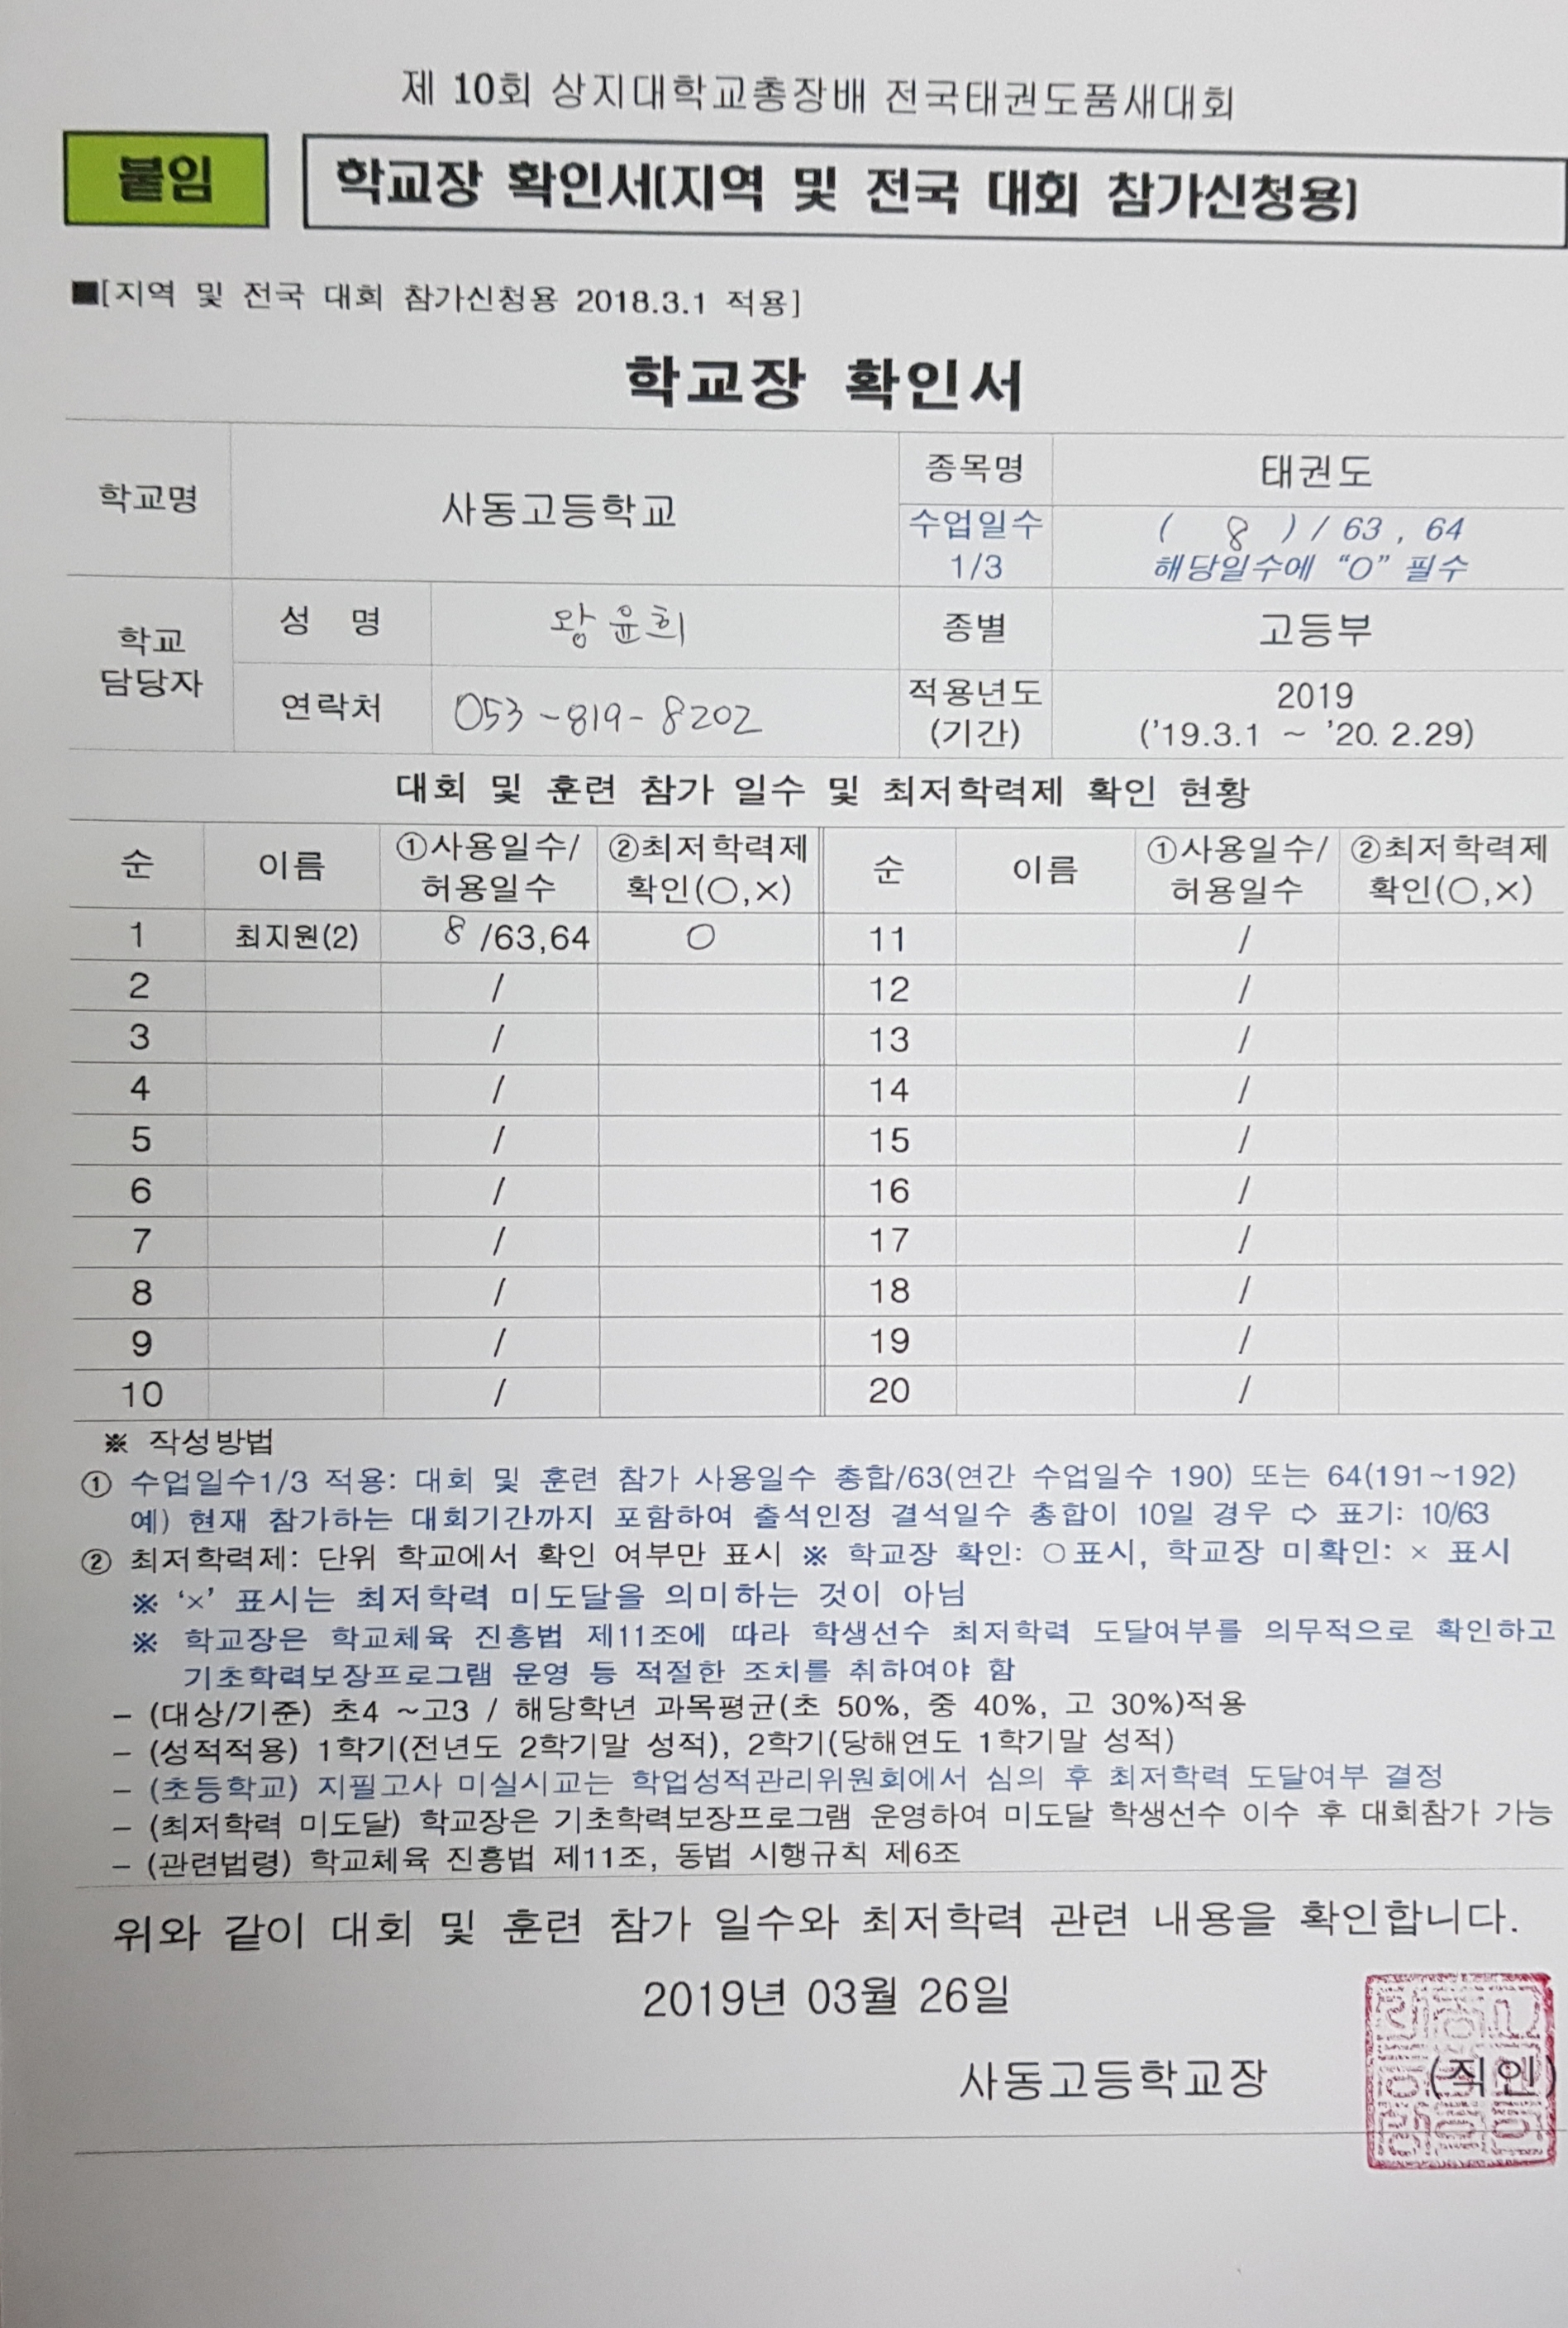 제 10회 상지대학교총장배 전국태권도품새대회
붙임
학교장 확인서[지역 및 전국 대회 참가신청용]
■[지역 및 전국 대회 참가신청용 2018.3.1 적용]
학교장 확인서
학교명 사동고등학교 종목명 태권도
수업일수 1/3 ( 8 ) / 63 , 64
해당일수에 “O” 필수
학교 담당자 성 명 왕윤희 종별 고등부
연락처 053-819-8202 적용년도 (기간) 2019
('19.3.1 ~ '20. 2.29)
대회 및 훈련 참가 일수 및 최저학력제 확인 현황
순 이름 ①사용일수/허용일수 ②최저학력제 확인(○,×) 순 이름 ①사용일수/허용일수 ②최저학력제 확인(○,×)
1 최지원(2) 8 /63,64 O 11 /
2 / 12 /
3 / 13 /
4 / 14 /
5 / 15 /
6 / 16 /
7 / 17 /
8 / 18 /
9 / 19 /
10 / 20 /
※ 작성방법
① 수업일수1/3 적용: 대회 및 훈련 참가 사용일수 총합/63(연간 수업일수 190) 또는 64(191~192)
예) 현재 참가하는 대회기간까지 포함하여 출석인정 결석일수 총합이 10일 경우 ⇨ 표기: 10/63
② 최저학력제: 단위 학교에서 확인 여부만 표시 ※ 학교장 확인: ○표시, 학교장 미확인: × 표시
※ ‘×’ 표시는 최저학력 미도달을 의미하는 것이 아님
※ 학교장은 학교체육 진흥법 제11조에 따라 학생선수 최저학력 도달여부를 의무적으로 확인하고
기초학력보장프로그램 운영 등 적절한 조치를 취하여야 함
- (대상/기준) 초4 ~고3 / 해당학년 과목평균(초 50%, 중 40%, 고 30%)적용
- (성적적용) 1학기(전년도 2학기말 성적), 2학기(당해연도 1학기말 성적)
- (초등학교) 지필고사 미실시교는 학업성적관리위원회에서 심의 후 최저학력 도달여부 결정
- (최저학력 미도달) 학교장은 기초학력보장프로그램 운영하여 미도달 학생선수 이수 후 대회참가 가능
- (관련법령) 학교체육 진흥법 제11조, 동법 시행규칙 제6조
위와 같이 대회 및 훈련 참가 일수와 최저학력 관련 내용을 확인합니다.
2019년 03월 26일
사동고등학교장 (직인)